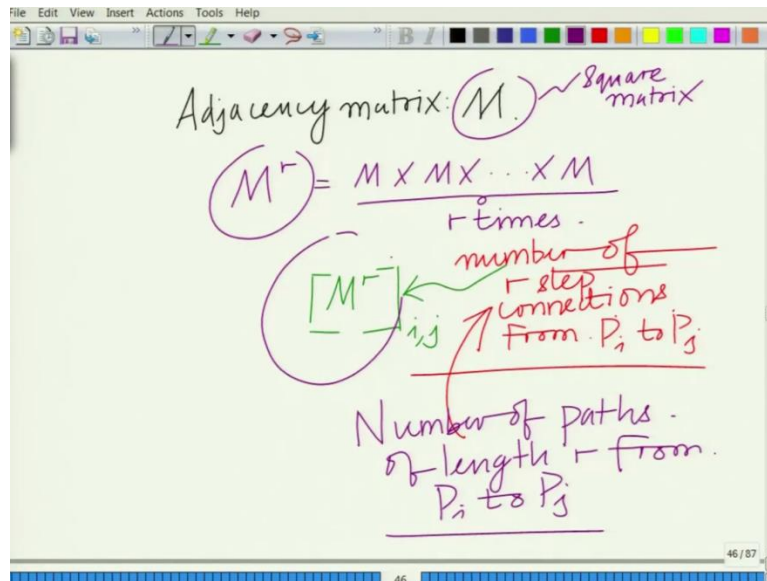 File Edit View Insert Actions Tools Help
B I
Adjacency matrix: M. Square
matrix
M^r = M X M X ... X M
r times.
[M^r]i,j
number of
r step
connections
From. Pi to Pj
Number of paths.
of length r from.
Pi to Pj
46/87
46